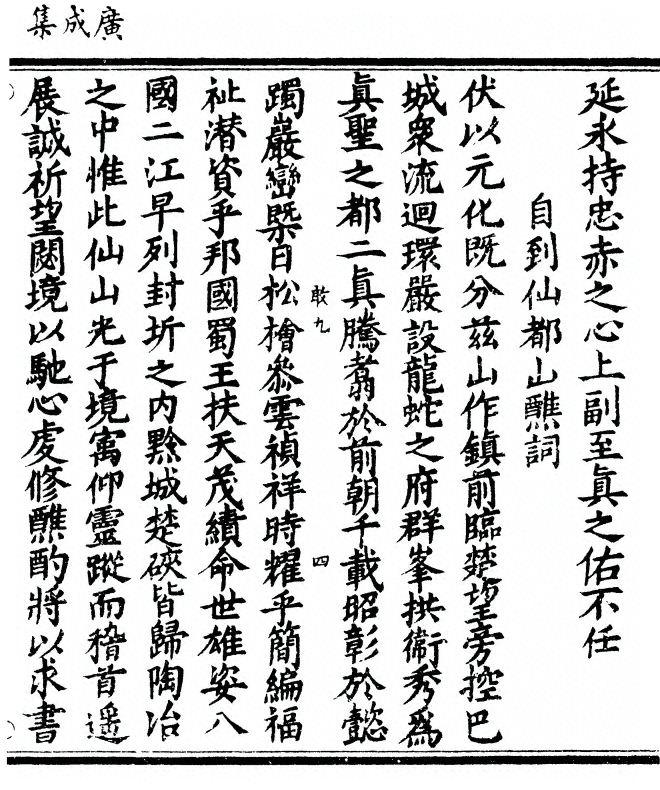 廣成集
延永持忠赤之心上副至眞之佑不任
自到仙都山醮詞
伏以元化既分兹山作鎮前臨楚望旁控巴
城衆流迴環嚴設龍蛇之府群峯拱衛秀爲
眞聖之都二眞騰翥於前朝千載昭彰於懿
敢九
四
躅巖巒槩日松檜叅雲禎祥時耀乎簡編福
祉潜資乎邦國蜀王扶天茂績命世雄姿八
國二江早列封圻之内黔城楚硤皆歸陶冶
之中惟此仙山光于境寓仰靈蹤而稽首遥
展誠祈望閟境以馳心虔修醮酌將以求書